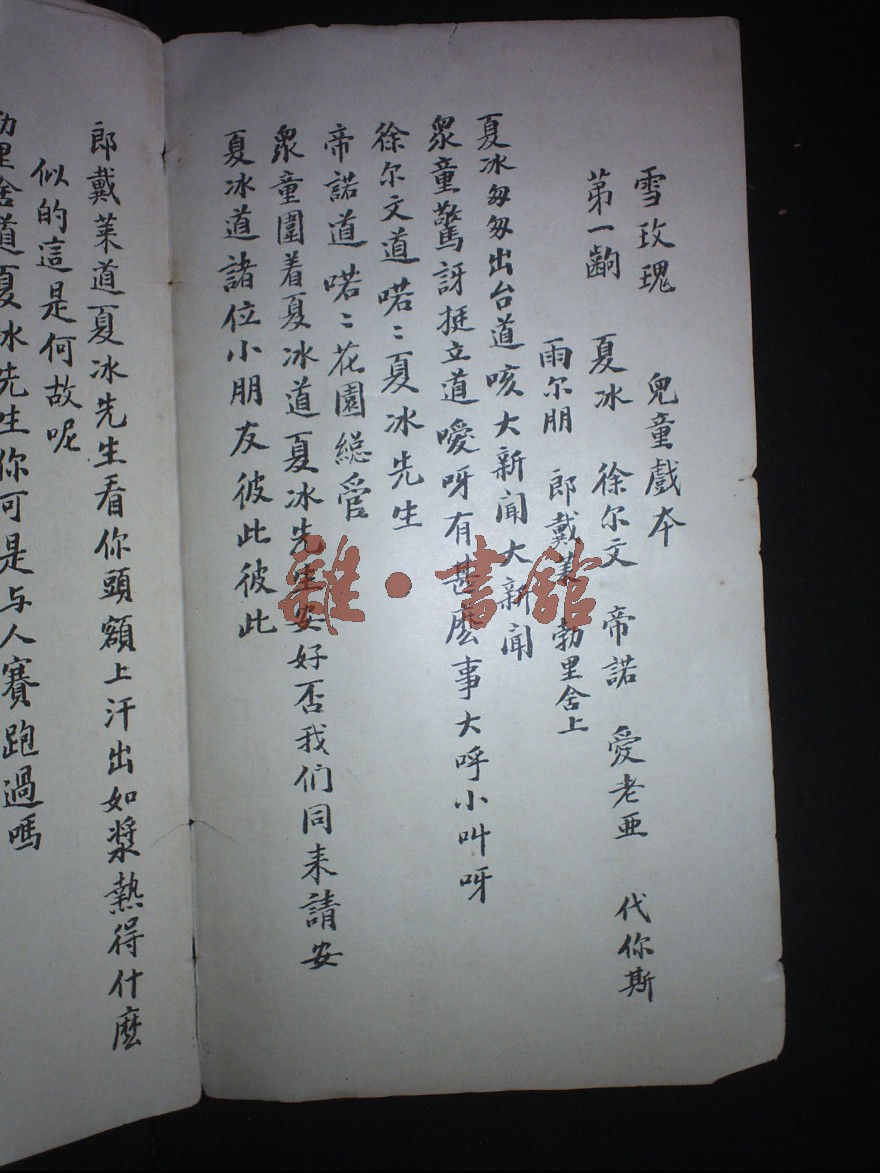 雪玫瑰 兒童戲本
第一齣 夏冰 徐尔文 帝諾 愛老亜 代你斯
雨尔朋 郎戴萊 勃里舍上
夏冰匆匆出台道咳大新闻大新闻
眾童驚訝挺立道噯呀有甚麽事大呼小叫呀
徐尔文道喏〻夏冰先生
帝諾道喏〻花園総管
眾童圍着夏冰道夏冰先生安好否我们同来請安
夏冰道諸位小朋友彼此彼此
郎戴萊道夏冰先生看你頭額上汗出如漿熱得什麽
似的這是何故呢
勃里舍道夏冰先生你可是与人賽跑過嗎
雜·書館